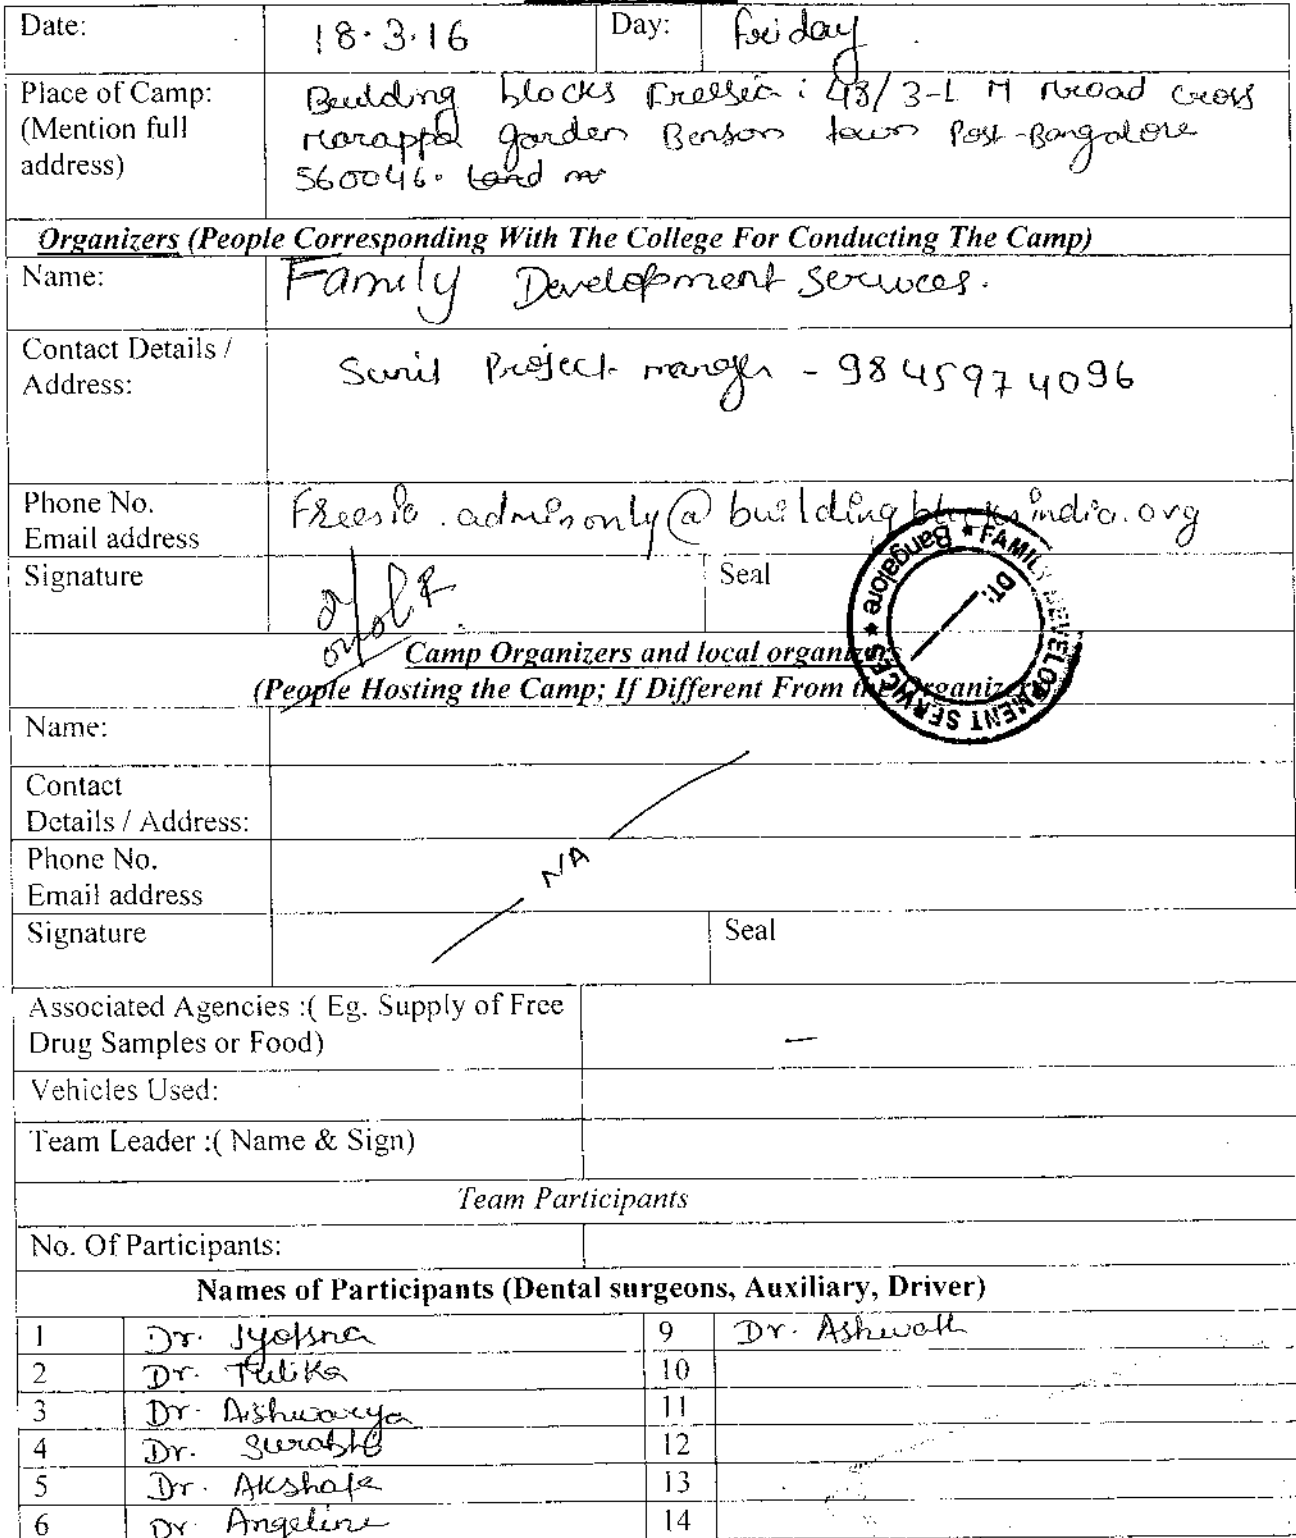 Date: 18.3.16 Day: Friday
Place of Camp: Building blocks Freesia : 43/3-L M road cross
(Mention full garden Benson town Post-Bangalore
address) 560046.
Organizers (People Corresponding With The College For Conducting The Camp)
Name: Family Development Services.
Contact Details / Sunil Project manager - 9845974096
Address:
Phone No. Freesia.adminonly@buildingblocksindia.org
Email address
Signature Seal
★ FAMILY DEVELOPMENT SERVICES ★ Bangalore
DT:
Camp Organizers and local organizers
(People Hosting the Camp; If Different From the Organizers
Name:
Contact
Details / Address:
Phone No. NA
Email address
Signature Seal
Associated Agencies :( Eg. Supply of Free
Drug Samples or Food) —
Vehicles Used:
Team Leader :( Name & Sign)
Team Participants
No. Of Participants:
Names of Participants (Dental surgeons, Auxiliary, Driver)
1 Dr. Jyotsna 9 Dr. Ashwath
2 Dr. Tulika 10
3 Dr. Aishwarya 11
4 Dr. Surabhi 12
5 Dr. Akshata 13
6 Dr. Angeline 14